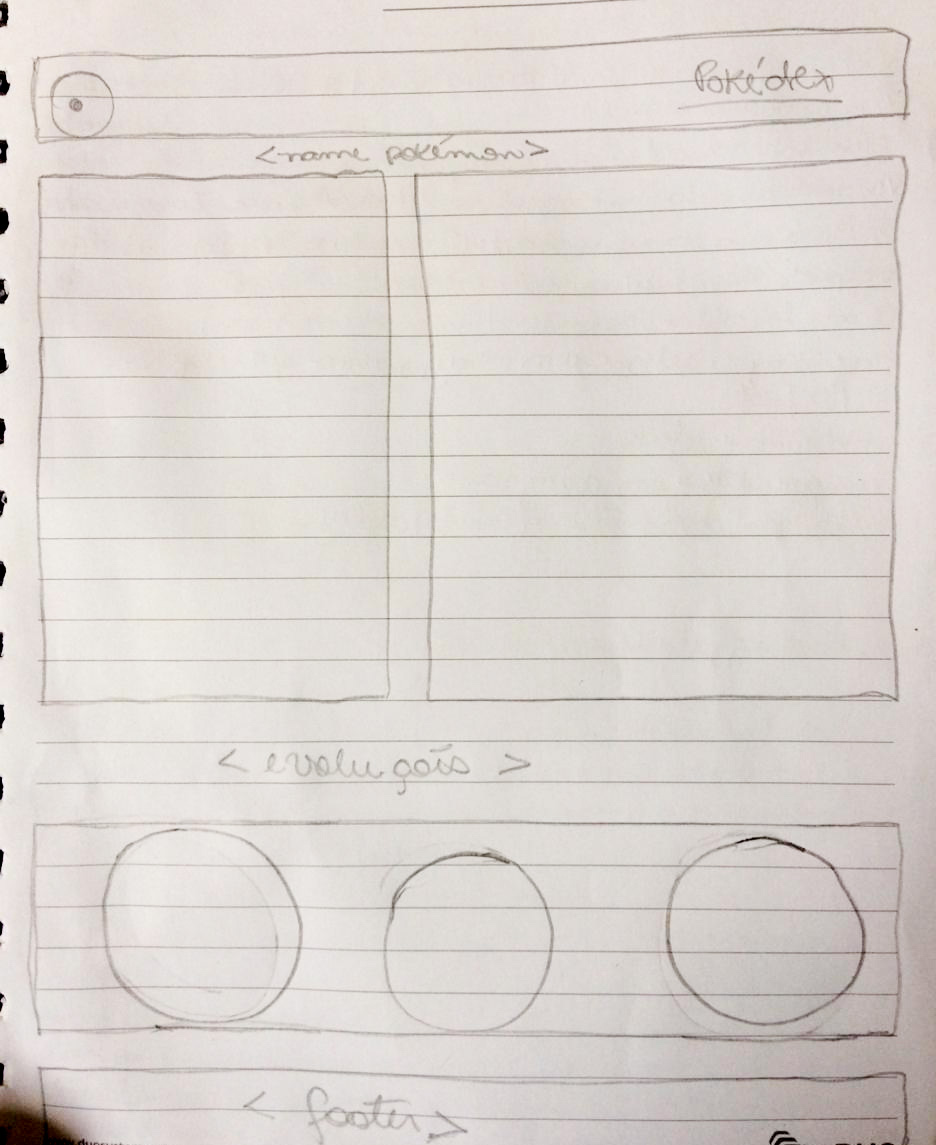 Pokédex
<name pokémon>
<evoluçois>
<footer>